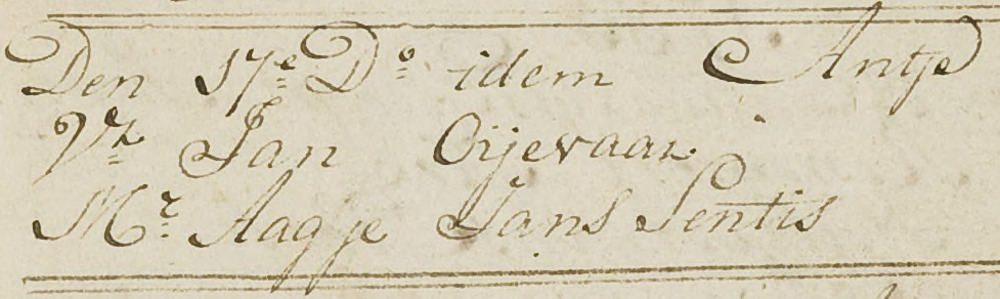 Den 17e Do idem Antje
Vr Jan Oijevaar
Mr Aagje Jans Sentis